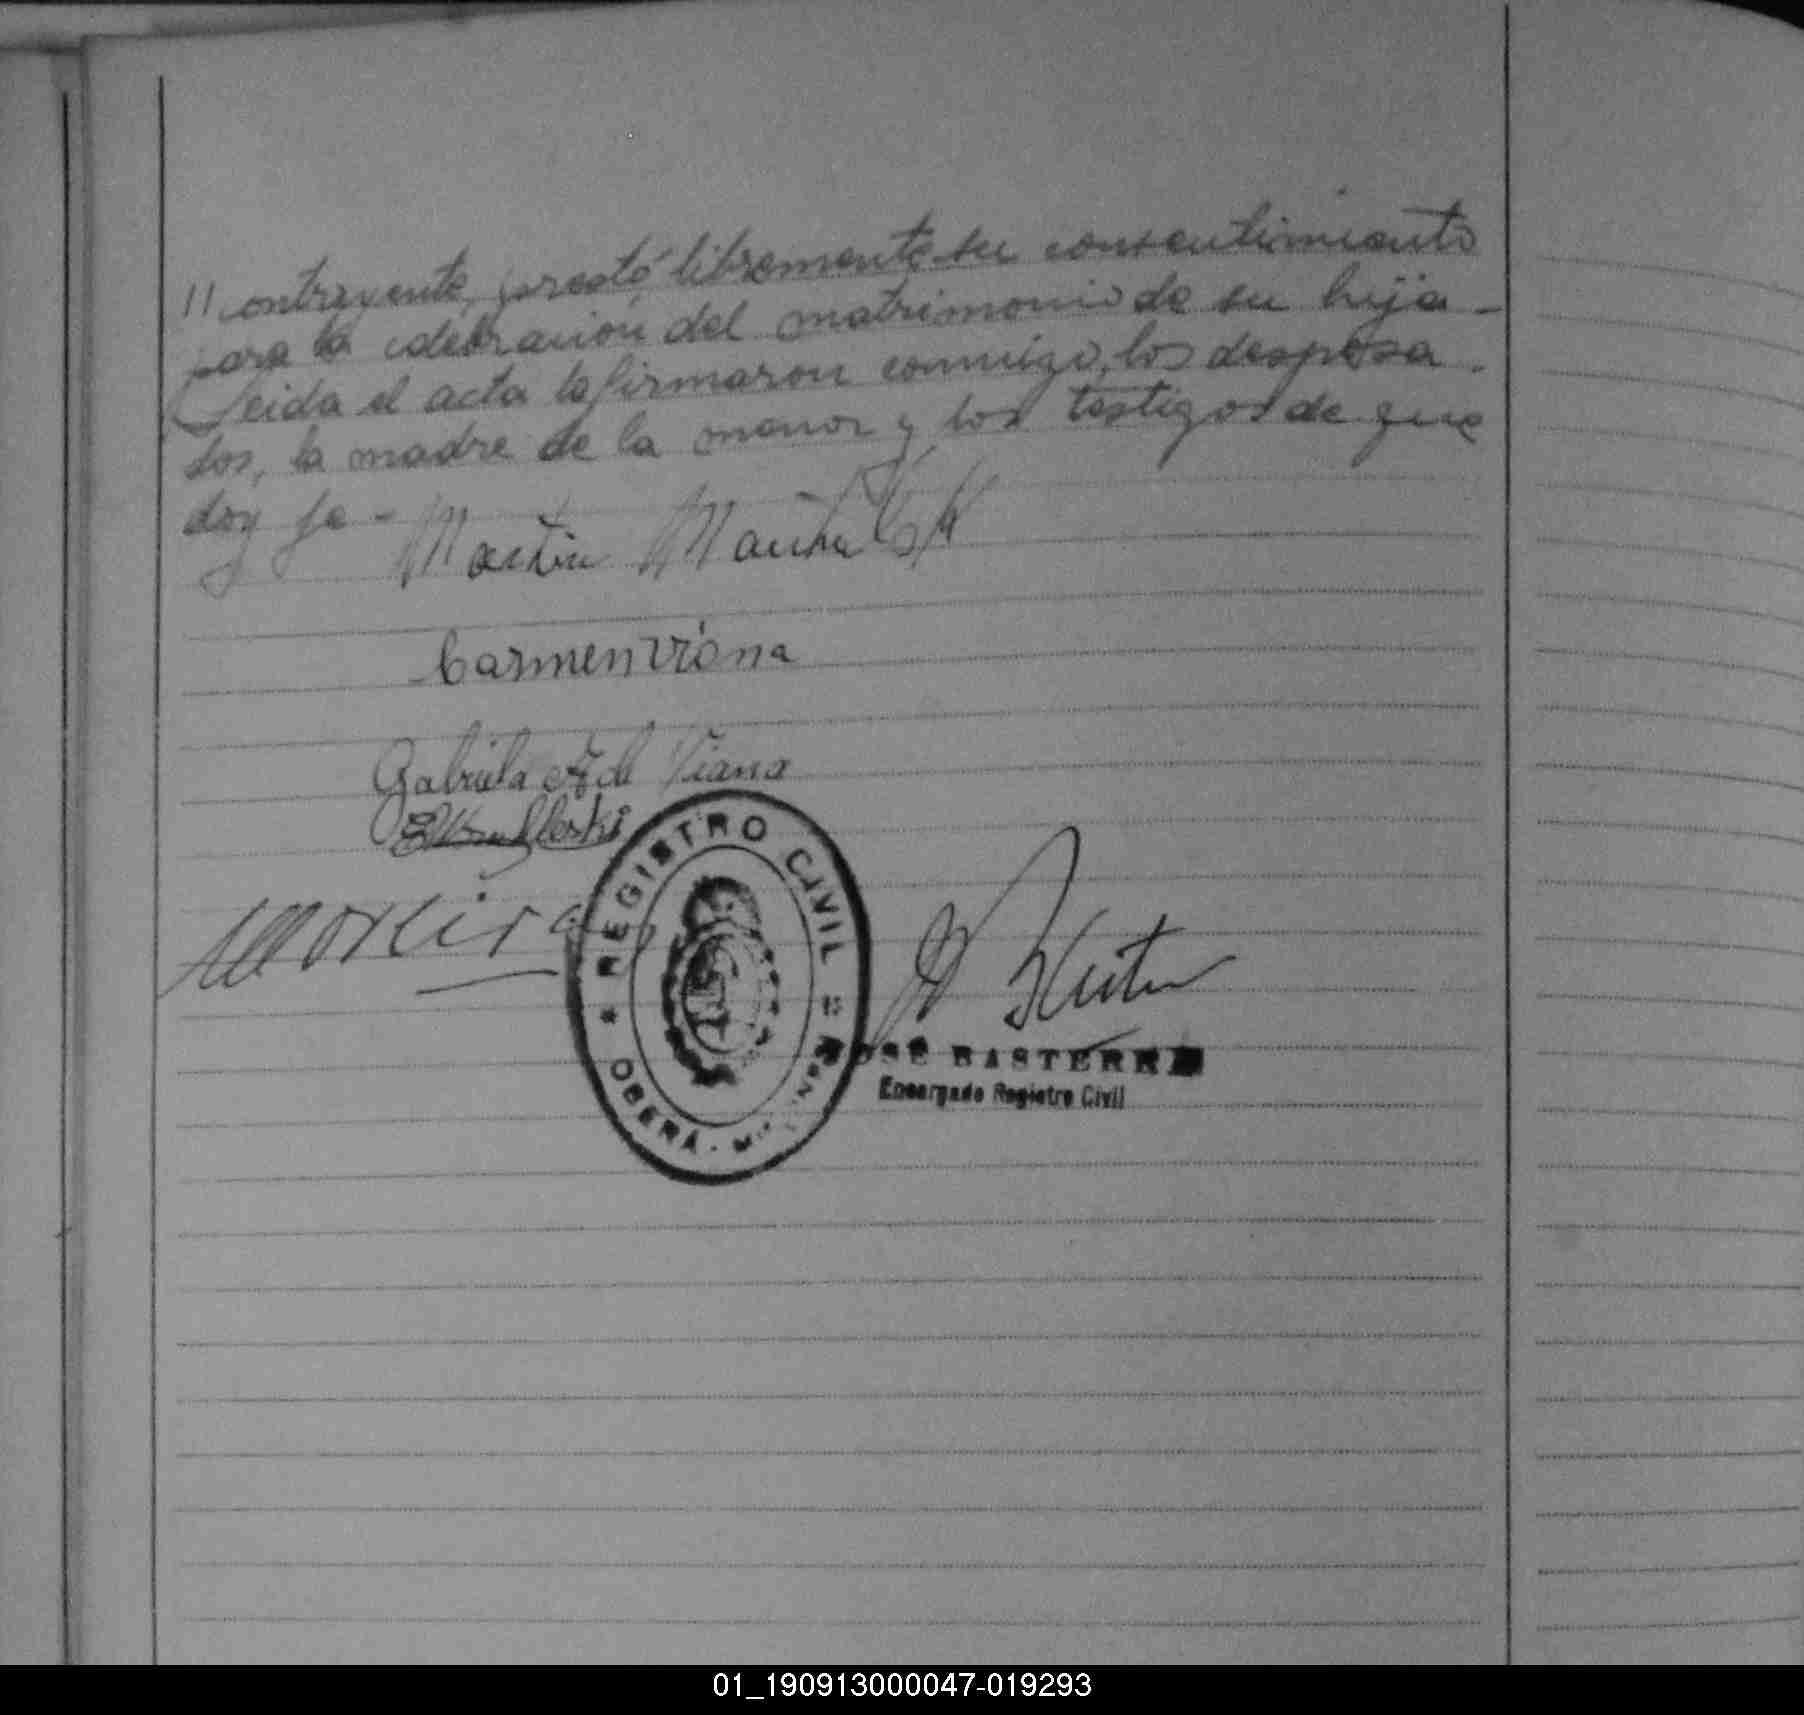 // contrayente, prestó libremente su consentimiento
para la celebración del matrimonio de su hija -
Leida el acta la firmaron conmigo, los desposa -
dos, la madre de la menor y los testigos de que
doy fe -
Martin
Carmen Viana
Gabriela A. de Viana
Moreira
REGISTRO CIVIL
OBERÁ
JOSÉ BASTERRA
Encargado Registro Civil
01_190913000047-019293